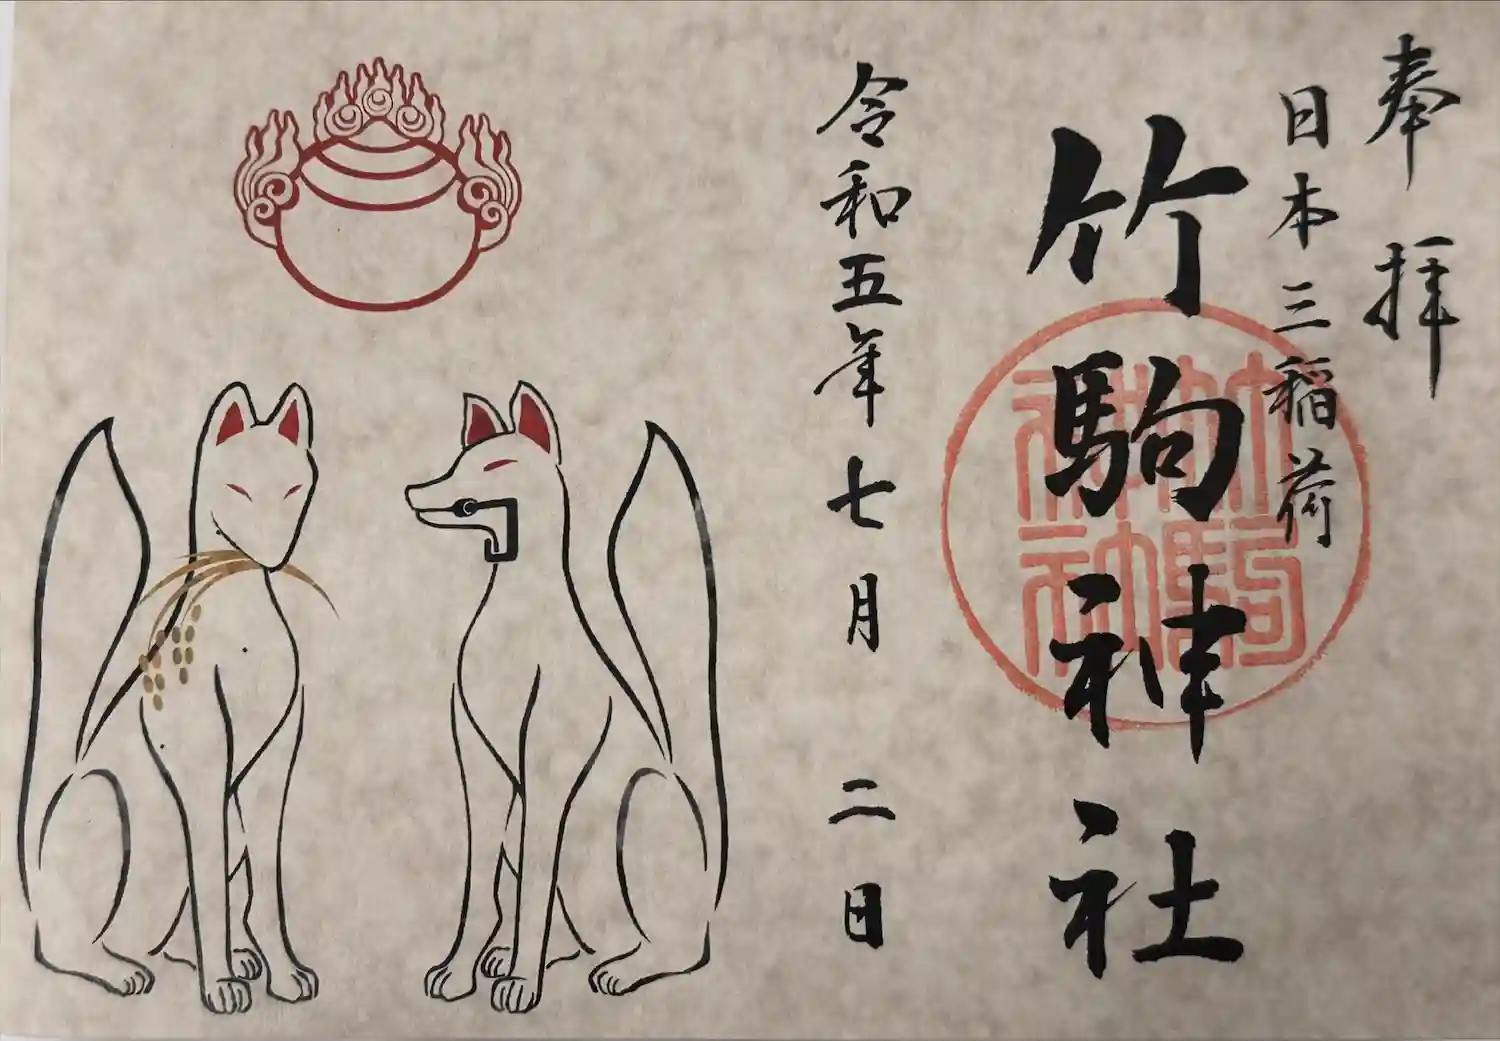 奉拝
日本三稲荷
竹駒神社
竹駒神社
令和五年七月二日